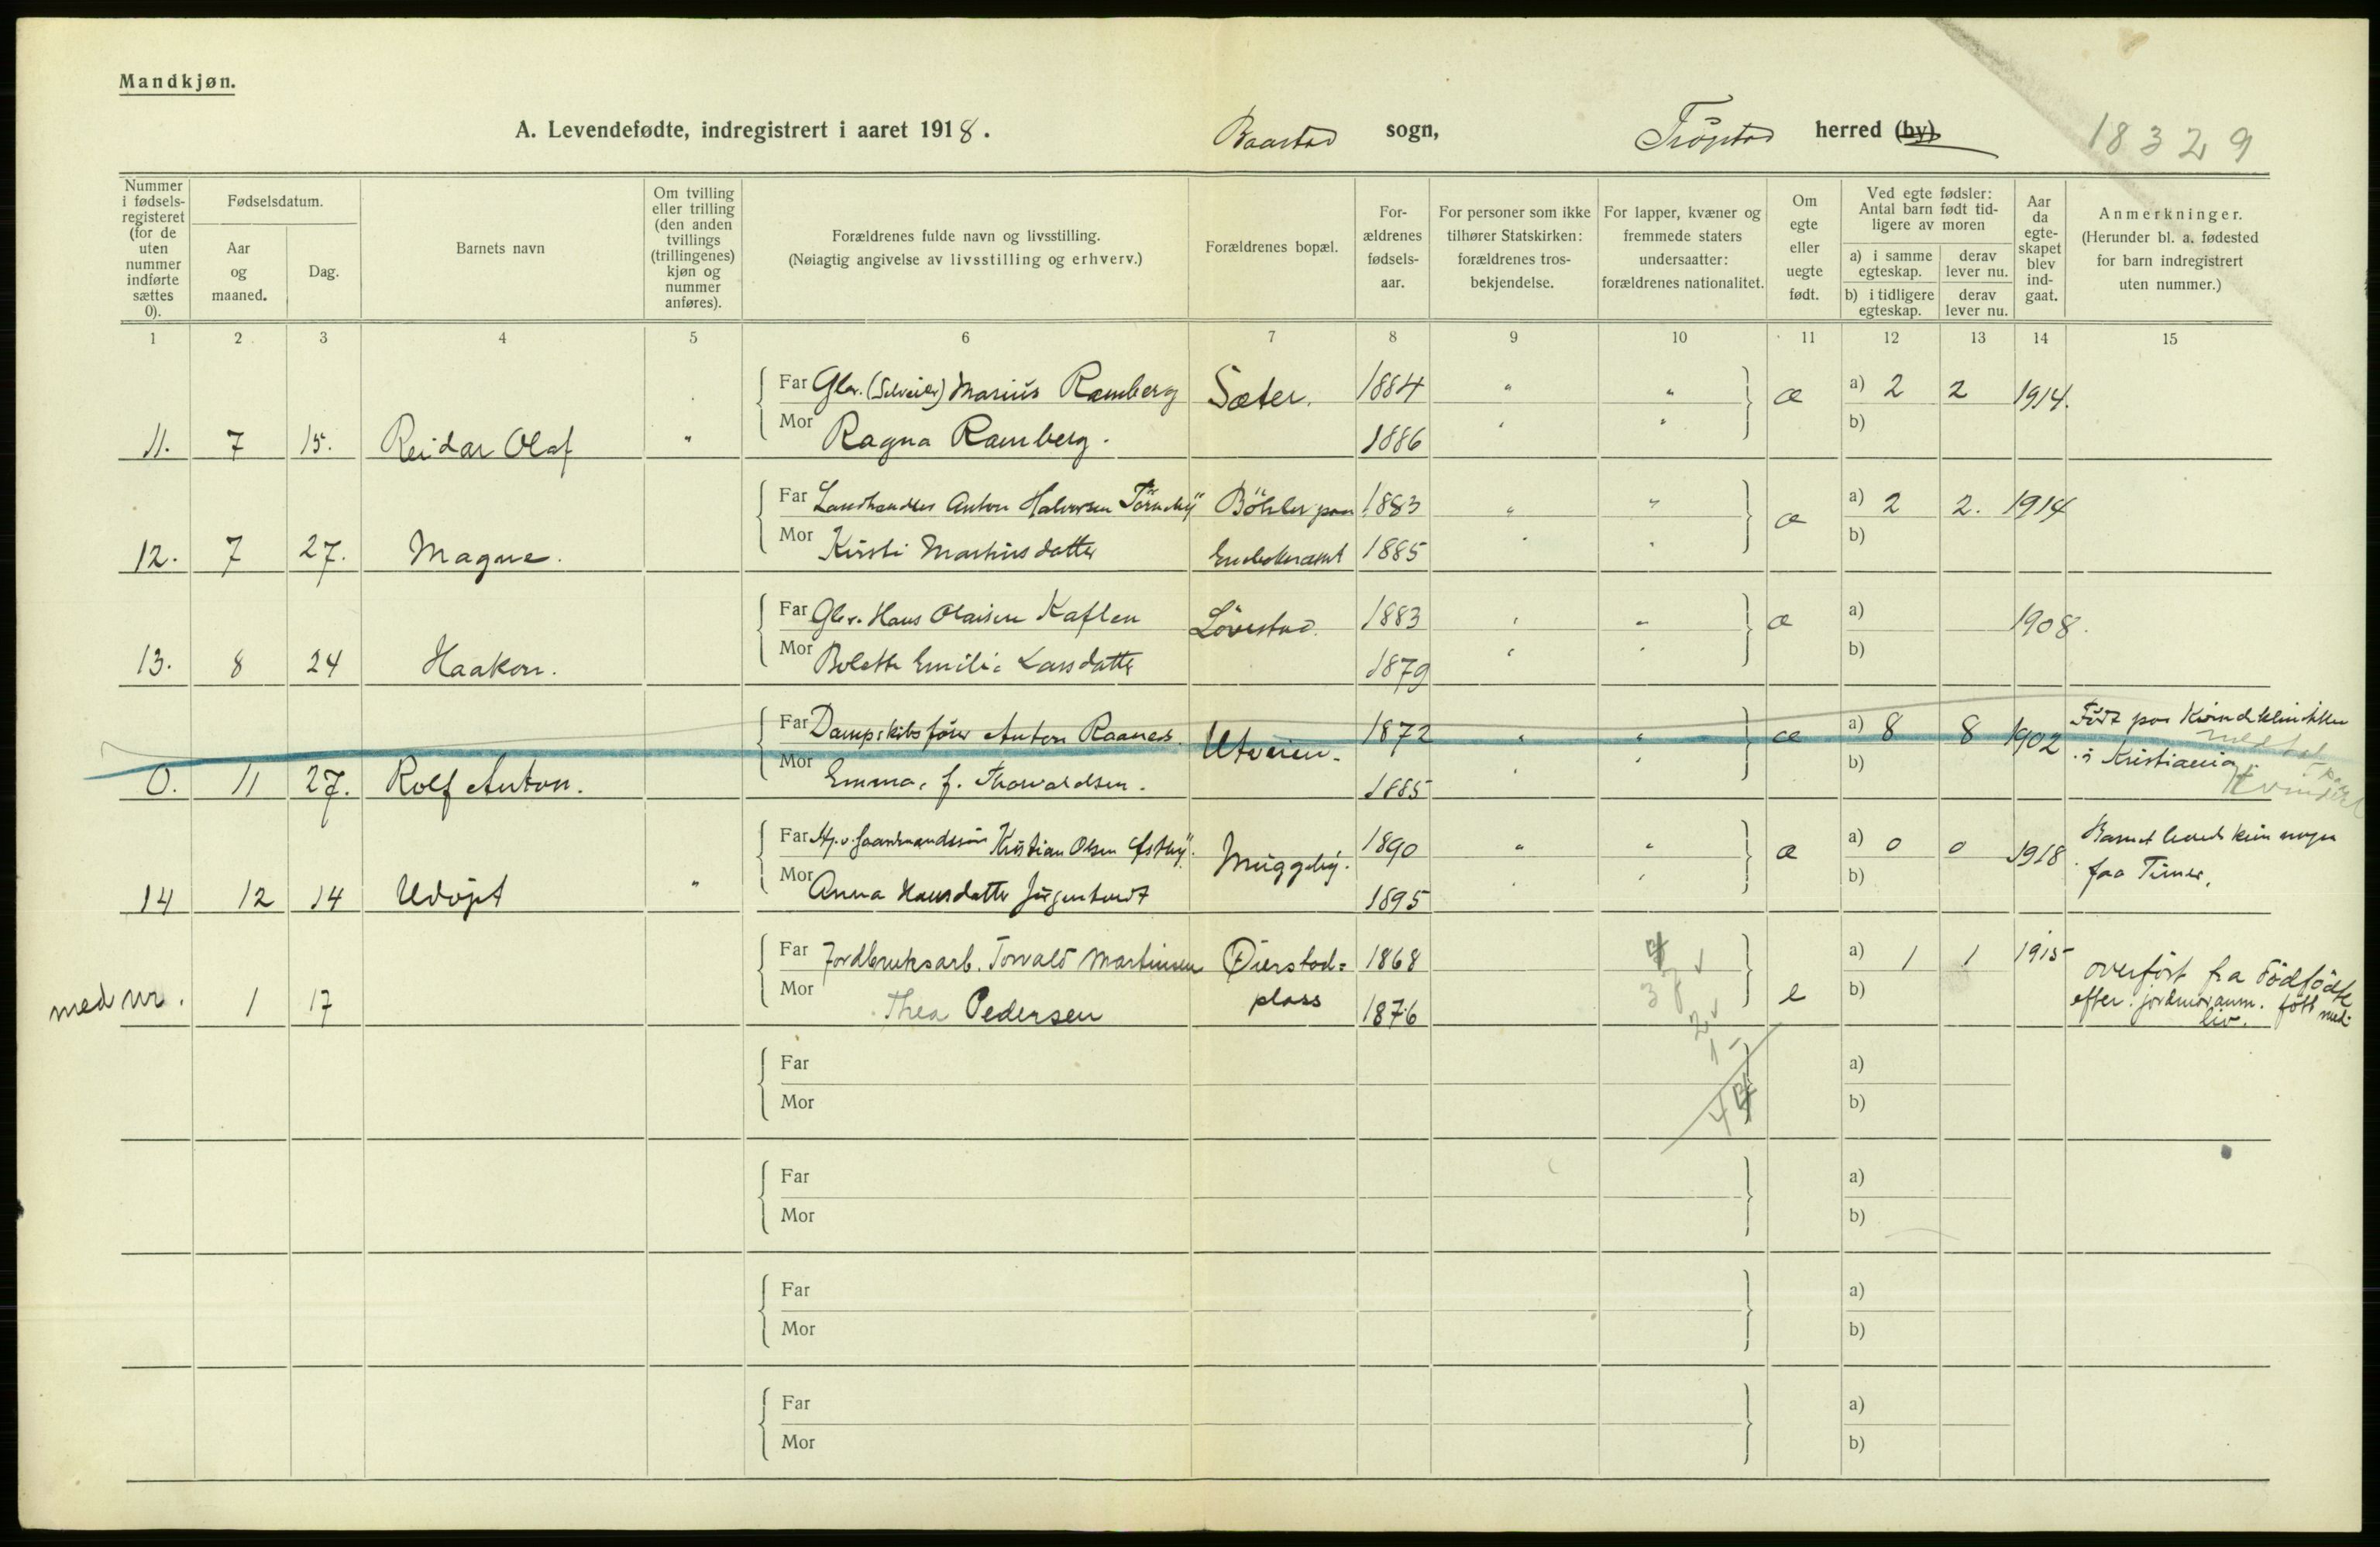 Mandkjøn.
A. Levendefødte, indregistrert i aaret 1918. Baastad sogn, Trøgstad herred (by) 18329
Nummer i fødsels-registeret (for de uten nummer indførte sættes 0).
Fødselsdatum.
Aar og maaned.
Dag.
Barnets navn
Om tvilling eller trilling (den anden tvillings (trillingenes) kjøn og nummer anføres).
Forældrenes fulde navn og livsstilling.
(Nøiagtig angivelse av livsstilling og erhverv.)
Forældrenes bopæl.
For-ældrenes fødsels-aar.
For personer som ikke tilhører Statskirken: forældrenes tros-bekjendelse.
For lapper, kvæner og fremmede staters undersaatter: forældrenes nationalitet.
Om egte eller uegte født.
Ved egte fødsler: Antal barn født tid-ligere av moren
a) i samme egteskap.
derav lever nu.
b) i tidligere egteskap.
derav lever nu.
Aar da egte-skapet blev ind-gaat.
Anmerkninger.
(Herunder bl. a. fødested for barn indregistrert uten nummer.)
1 2 3 4 5 6 7 8 9 10 11 12 13 14 15
Far Gbr. (Selveier) Marius Ramberg Sæter. 1884 " " æ a) 2 2 1914.
11. 7 15. Reidar Olaf " Mor Ragna Ramberg. 1886 " " b)
Far Landhandler Anton Halvorsen Tørneby Böhler paa 1883 " " æ a) 2 2. 1914
12. 7 27. Magne. Mor Kirsti Martinsdatter 1885 " " b)
Far Gbr. Hans Olaisen Kaflen Lövestad. 1883 " " æ a) 1908.
13. 8 24 Haakon. Mor Bolette Emilie Larsdatter 1879 " " b)
Far Dampskibsfører Anton Raanes. Utveien. 1872 " " æ a) 8 8 1902 Født paa Kvindeklinikken
0. 11 27. Rolf Anton. Mor Emma, f. Thorvaldsen. 1885 " " b) i Kristiania.
Far Kristian Olsen Muggeby. 1890 " " æ a) 0 0 1918. Barnet levede kun nogen
14 12 14 Udøpt " Mor Anna Hansdatter 1895 " " b) faa Timer.
Far Jordbruksarb. Torvald Martinsen Øierstad= 1868 a) 1 1 1915 overfört fra Dödfödte
med nr. 1 17 Mor Thea Pedersen plass 1876 e b) efter jordmoranm. fött med liv.
Far a)
Mor b)
Far a)
Mor b)
Far a)
Mor b)
Far a)
Mor b)